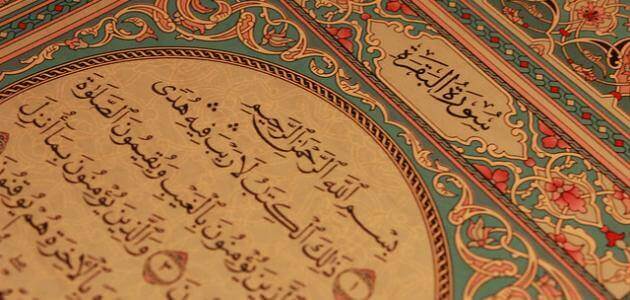 سُورَةُ البَقَرَةِ
بِسْمِ ٱللَّهِ ٱلرَّحْمَٰنِ ٱلرَّحِيمِ
١ ذَٰلِكَ ٱلْكِتَٰبُ لَا رَيْبَ فِيهِ هُدًى
ٱلَّذِينَ يُؤْمِنُونَ بِٱلْغَيْبِ وَيُقِيمُونَ ٱلصَّلَوٰةَ
٣ وَٱلَّذِينَ يُؤْمِنُونَ بِمَآ أُنزِلَ
وَبِٱلْءَاخِرَةِ هُمْ يُوقِنُونَ